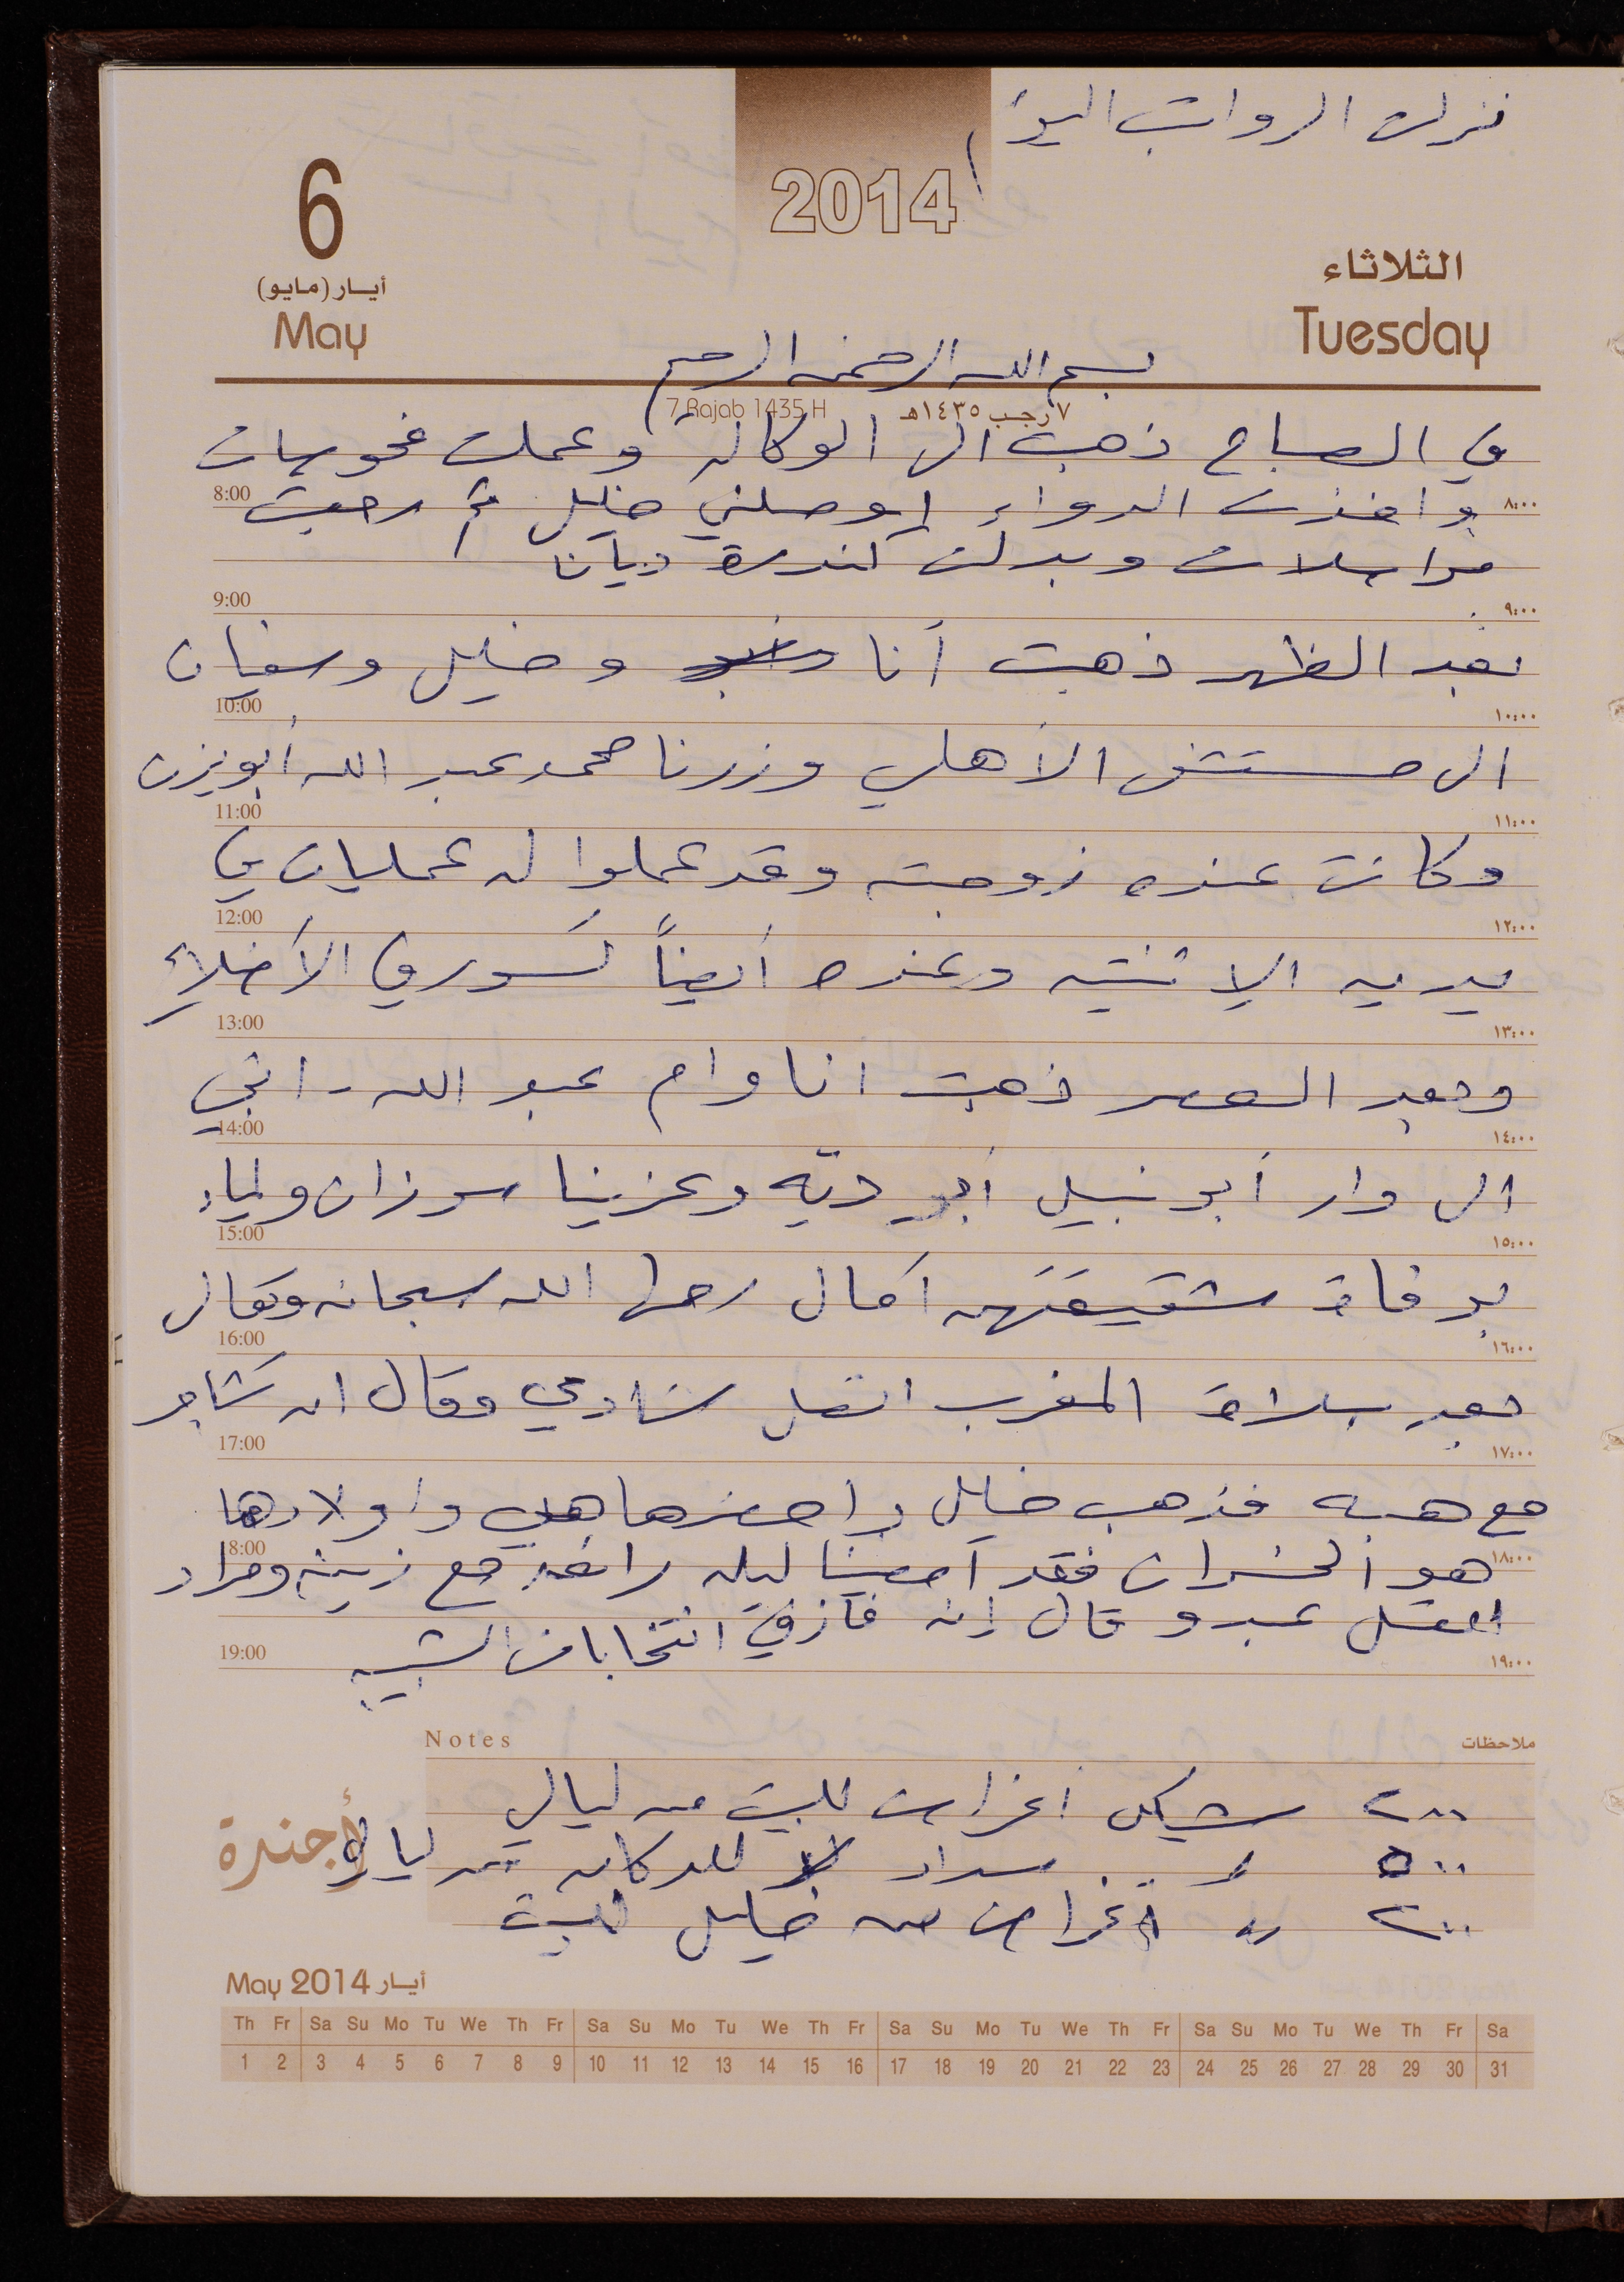 نزلت الرواتب اليوم
2014
6
أيـار (مـايو)
May
الثلاثاء
Tuesday
بسم الله الرحمن الرحيم
7 Rajab 1435 H
٧ رجب ١٤٣٥هـ
في الصباح ذهبت الى الوكالة وعملت فحوصات
8:00 ٨:٠٠
وأخذت الدواء أوصلني خليل ثم رجعت
مواصلات وبدلت كندرة ديانا
9:00 ٩:٠٠
بعد الظهر ذهبت أنا وخليل وسفيان
10:00 ١٠:٠٠
الى مستشفى الأهلي وزرنا محمد عبد الله أبو يزن
11:00 ١١:٠٠
وكانت عنده زوجته وقد عملوا له عمليات في
12:00 ١٢:٠٠
يديه الاثنتين وعنده أيضاً كسور في الأضلاع
13:00 ١٣:٠٠
وبعد العصر ذهبت انا وام عبد الله
14:00 ١٤:٠٠
الى دار أبو نبيل أبو ديّه وعزينا سوزان ولمياء
15:00 ١٥:٠٠
بوفاة شقيقتهن آمال رحمها الله سبحانه وتعالى
16:00 ١٦:٠٠
بعد صلاة المغرب اتصل شادي وقال انه تشاجر
17:00 ١٧:٠٠
مع هبه فذهب خليل وأحضرها هي وأولادها
18:00 ١٨:٠٠
هو الخسران فقد أمضينا ليلة رائعة مع زينه ومراد
اتصل عبد وقال إنه فاز في انتخابات الشبيبه
19:00 ١٩:٠٠
Notes ملاحظات
٢٠٠ شيكل أغراض للبيت من ليالي
٥٠٠ // سداد للدكان من ليالي
٢٠٠ // أغراض من خليل للبيت
الأجندة
May 2014 أيـار
Th Fr Sa Su Mo Tu We Th Fr Sa Su Mo Tu We Th Fr Sa Su Mo Tu We Th Fr Sa Su Mo Tu We Th Fr Sa
1 2 3 4 5 6 7 8 9 10 11 12 13 14 15 16 17 18 19 20 21 22 23 24 25 26 27 28 29 30 31